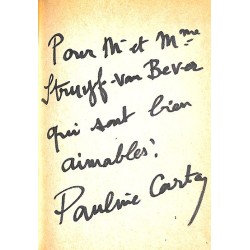 Pour Mr et Mme
Struyf-van Bever
qui sont bien
aimables!
Pauline Carton